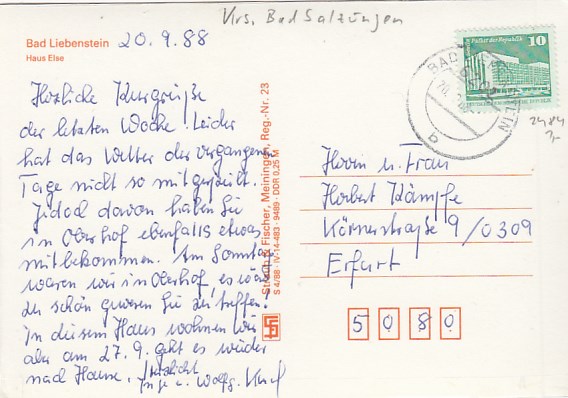 Krs. Bad Salzungen
Bad Liebenstein 20.9.88
Haus Else
Herzliche Kurgrüße
der letzten Woche! Leider
hat das Wetter der vergangenen
Tage nicht so mitgespielt.
Jedoch davon haben Sie
in Oberhof ebenfalls etwas
mitbekommen. Am Sonntag
waren wir in Oberhof, es wäre
schön gewesen Sie zu treffen!
In diesem Haus wohnen wir
aber am 27.9. geht es wieder
nach Hause. Herzlichst
Inge u. Wolfg.
Straub & Fischer, Meiningen, Reg.-Nr. 23
S 4/88 · IV-14-483 · 9489 · DDR 0,25 M
Palast der Republik 10
DDR
BAD LIEBENSTEIN
b
2484
Herrn u. Frau
Herbert Kämpfe
Körnerstraße 9/0309
Erfurt
5080